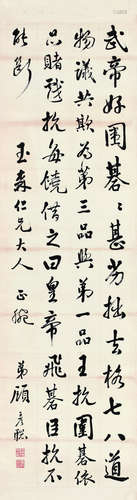 武帝好圍碁甚拙去格七八道
物議共欺為第三品與第一品王抗圍碁依
品賭戲抗每饒借之曰皇帝飛碁臣抗不
能斷
玉森仁兄大人 正腕
弟顧彥聰